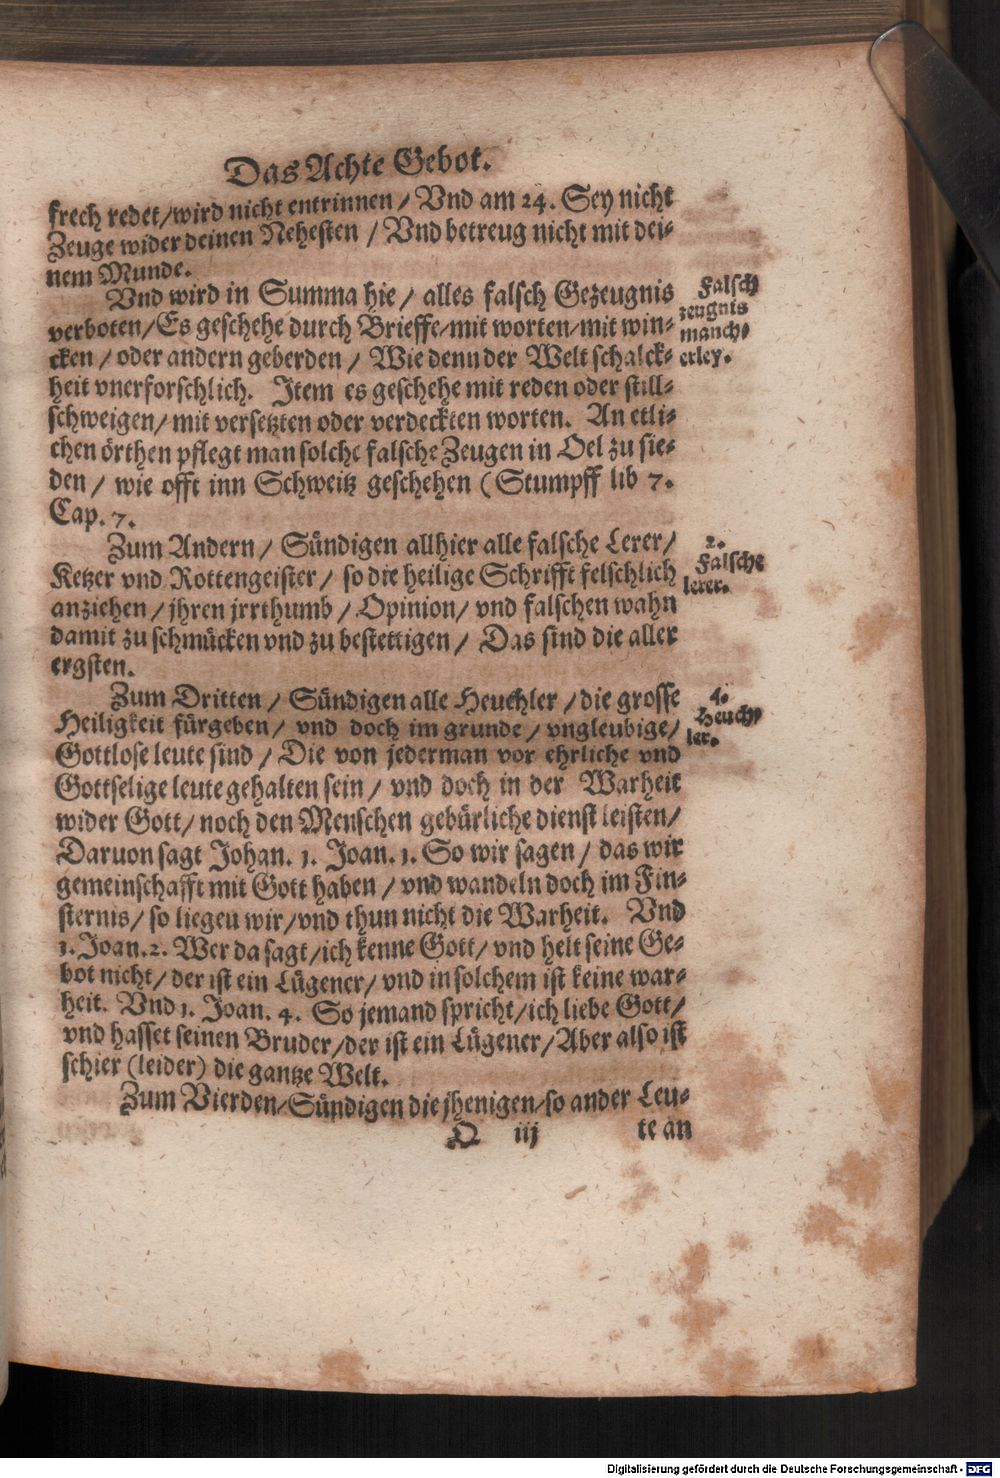 Das Achte Gebot.
frech redet/wird nicht entrinnen / Vnd am 24. Sey nicht
Zeuge wider deinen Nehesten / Vnd betreug nicht mit dei-
nem Munde.
Vnd wird in Summa hie / alles falsch Gezeugnis
verboten/Es geschehe durch Brieffe/mit worten/mit win-
cken / oder andern geberden / Wie denn der Welt schalck-
heit vnerforschlich. Item es geschehe mit reden oder still-
schweigen/mit versetzten oder verdeckten worten. An etli-
chen örthen pflegt man solche falsche Zeugen in Oel zu sie-
den / wie offt inn Schweitz geschehen (Stumpff lib 7.
Cap. 7.
Falsch
zeugnis
manch-
erley.
Zum Andern / Sündigen allhier alle falsche Lerer/
Ketzer vnd Rottengeister / so die heilige Schrifft felschlich
anziehen / jhren jrrthumb / Opinion/ vnd falschen wahn
damit zu schmücken vnd zu bestettigen / Das sind die aller
ergsten.
2.
Falsche
lerer.
Zum Dritten / Sündigen alle Heuchler / die grosse
Heiligkeit fürgeben/ vnd doch im grunde / vngleubige/
Gottlose leute sind / Die von jederman vor ehrliche vnd
Gottselige leute gehalten sein / vnd doch in der Warheit
wider Gott/ noch den Menschen gebürliche dienst leisten/
Daruon sagt Johan. 1. Joan. 1. So wir sagen / das wir
gemeinschafft mit Gott haben / vnd wandeln doch im Fin-
sternis/ so liegen wir/vnd thun nicht die Warheit. Vnd
1. Joan. 2. Wer da sagt/ich kenne Gott/ vnd helt seine Ge-
bot nicht/ der ist ein Lügener/ vnd in solchem ist keine war-
heit. Vnd 1. Joan. 4. So jemand spricht/ich liebe Gott/
vnd hasset seinen Bruder/der ist ein Lügener/Aber also ist
schier (leider) die gantze Welt.
4.
Heuch-
ler.
Zum Vierden/Sündigen die jhenigen/so ander Leu-
O iij te an
Digitalisierung gefördert durch die Deutsche Forschungsgemeinschaft - DFG